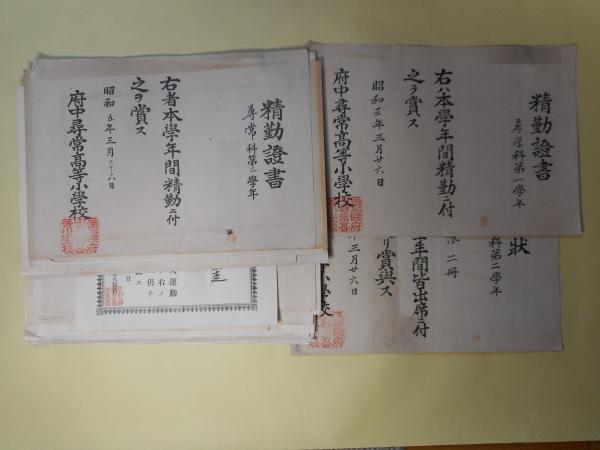 精勤證書
尋常科第一學年
右ハ本學年間精勤ニ付
之ヲ賞ス
昭和三年三月廿六日
府中尋常高等小學校
狀
科第二學年
二冊
年間皆出席ニ付
賞與ス
三月廿六日
精勤證書
尋常科第二學年
右者本學年間精勤ニ付
之ヲ賞ス
昭和五年三月二十六日
府中尋常高等小學校
運動
右ノ
仍テ
ス
日